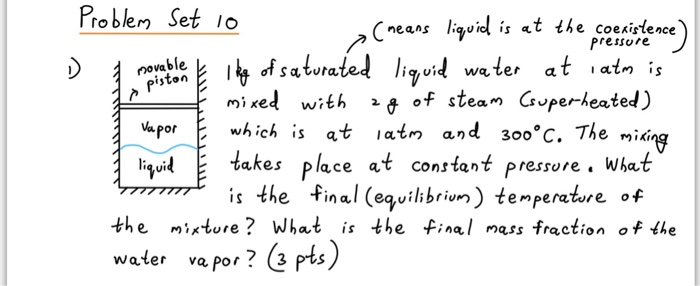 Problem Set 10
(means liquid is at the coexistence pressure)
1)
movable piston
vapor
liquid
1 kg of saturated liquid water at 1 atm is
mixed with 2 g of steam (super-heated)
which is at 1 atm and 300°C. The mixing
takes place at constant pressure. What
is the final (equilibrium) temperature of
the mixture? What is the final mass fraction of the
water vapor? (3 pts)